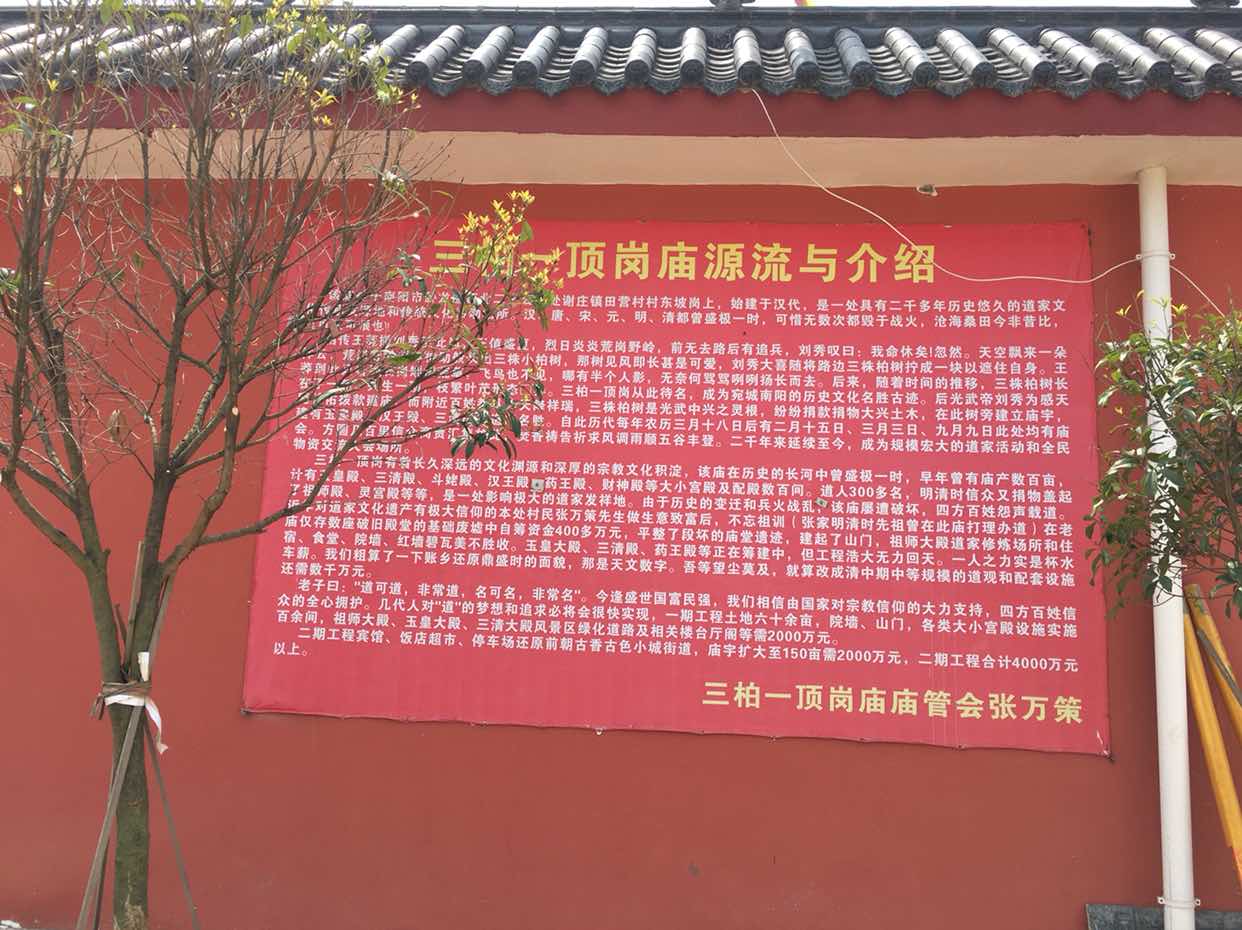 三 一顶岗庙源流与介绍
阳市 处谢庄镇田营村村东坡岗上，始建于汉代，是一处具有二千多年历史悠久的道家文
地和传 化 所。汉 唐、宋、元、明、清都曾盛极一时，可惜无数次都毁于战火，沧海桑田今非昔比，
也!
传王莽 刘秀 此 值盛 ，烈日炎炎荒岗野岭，前无去路后有追兵，刘秀叹曰：我命休矣!忽然。天空飘来一朵
云， 三株小柏树，那树见风即长甚是可爱，刘秀大喜随将路边三株柏树拧成一块以遮住自身。王
莽到此 飞鸟也不见，哪有半个人影，无奈何骂骂咧咧扬长而去。后来，随着时间的推移，三株柏树长
在 生一 枝繁叶茂 态 。三柏一顶岗从此得名，成为宛城南阳的历史文化名胜古迹。后光武帝刘秀为感天
拨款 庙 而附近百姓 天降祥瑞，三株柏树是光武中兴之灵根，纷纷捐款捐物大兴土木，在此树旁建立庙宇，
有玉皇殿、汉王殿、三 名 。自此历代每年农历三月十八日后有二月十五日、三月三日、九月九日此处均有庙
会。方圆 百里信 商贾汇 焚香祷告祈求风调雨顺五谷丰登。二千年来延续至今，成为规模宏大的道家活动和全民
物资交流大会场所。
三柏一顶岗有着长久深远的文化渊源和深厚的宗教文化积淀，该庙在历史的长河中曾盛极一时，早年曾有庙产数百亩，
计有玉皇殿、三清殿、斗姥殿、汉王殿 药王殿、财神殿等大小宫殿及配殿数百间。道人300多名，明清时信众又捐物盖起
了祖师殿、灵宫殿等等，是一处影响极大的道家发祥地。由于历史的变迁和兵火战乱 该庙屡遭破坏，四方百姓怨声载道。
对道家文化遗产有极大信仰的本处村民张万策先生做生意致富后，不忘祖训（张家明清时先祖曾在此庙打理办道）在老
庙仅存数座破旧殿堂的基础废墟中自筹资金400多万元，平整了段坏的庙堂遗迹，建起了山门，祖师大殿道家修炼场所和住
宿、食堂、院墙、红墙碧瓦美不胜收。玉皇大殿、三清殿、药王殿等正在筹建中，但工程浩大无力回天。一人之力实是杯水
车薪。我们粗算了一下账乡还原鼎盛时的面貌，那是天文数字。吾等望尘莫及，就算改成清中期中等规模的道观和配套设施
还需数千万元。
老子曰："道可道，非常道，名可名，非常名"。今逢盛世国富民强，我们相信由国家对宗教信仰的大力支持，四方百姓信
众的全心拥护。几代人对"道"的梦想和追求必将会很快实现，一期工程土地六十余亩，院墙、山门，各类大小宫殿设施实施
百余间，祖师大殿、玉皇大殿、三清大殿风景区绿化道路及相关楼台厅阁等需2000万元。
二期工程宾馆、饭店超市、停车场还原前朝古香古色小城街道，庙宇扩大至150亩需2000万元，二期工程合计4000万元
以上。
三柏一顶岗庙庙管会张万策